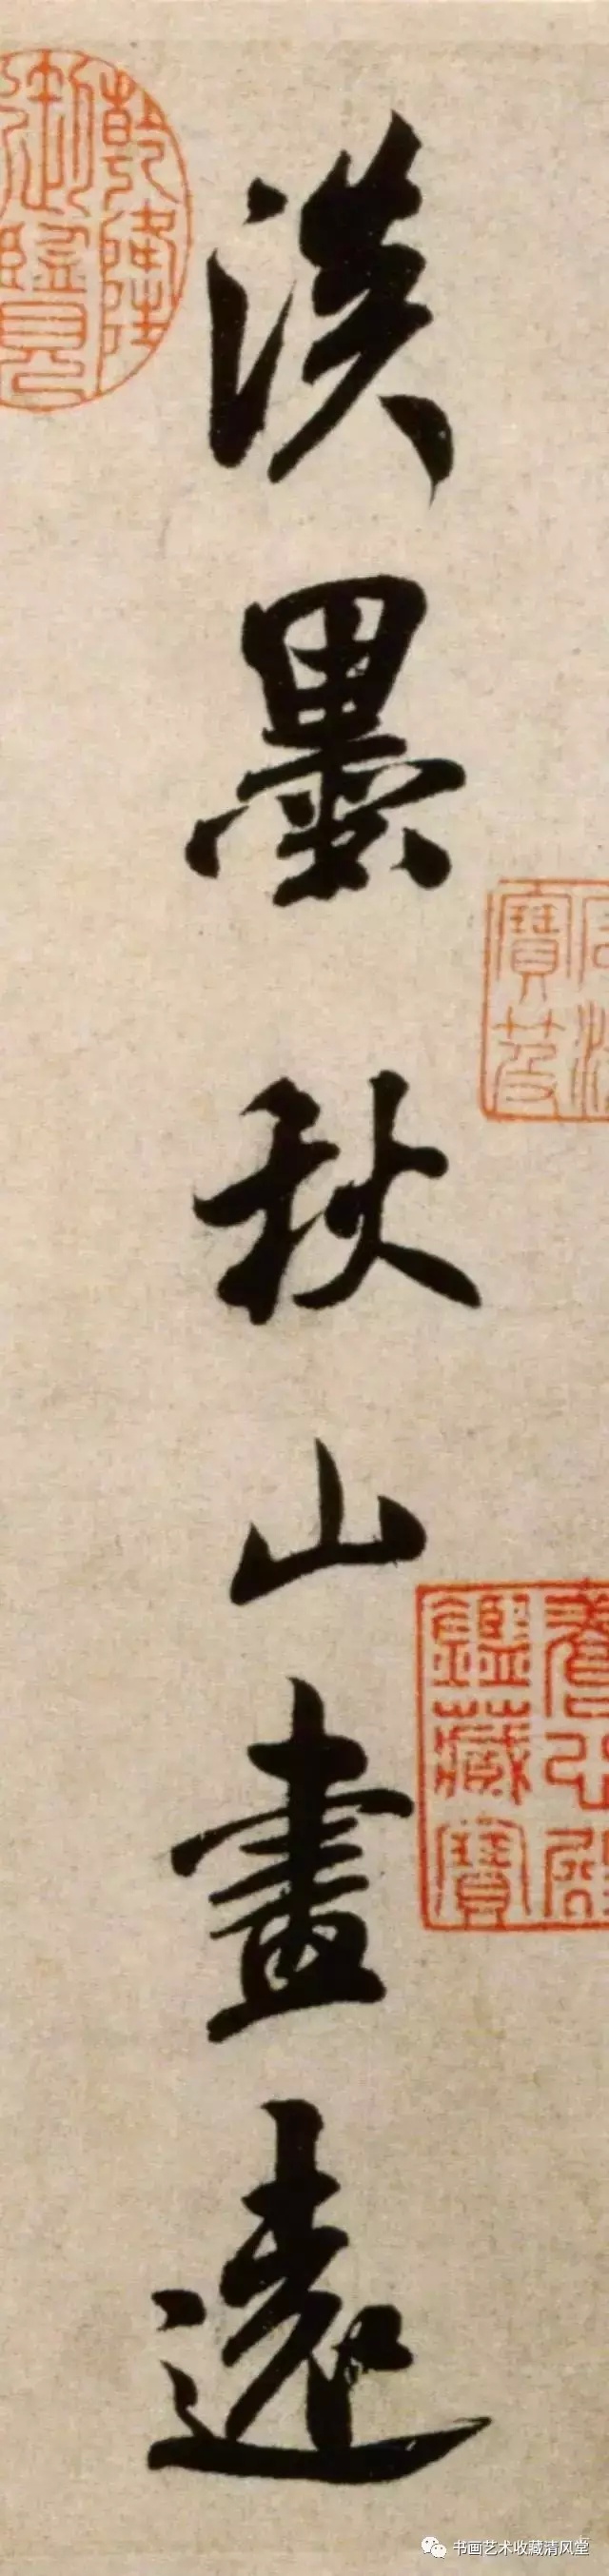 淡墨秋山畫遠
乾隆
御覽
石渠
寶笈
養心殿
鑑藏寶
书画艺术收藏清风堂